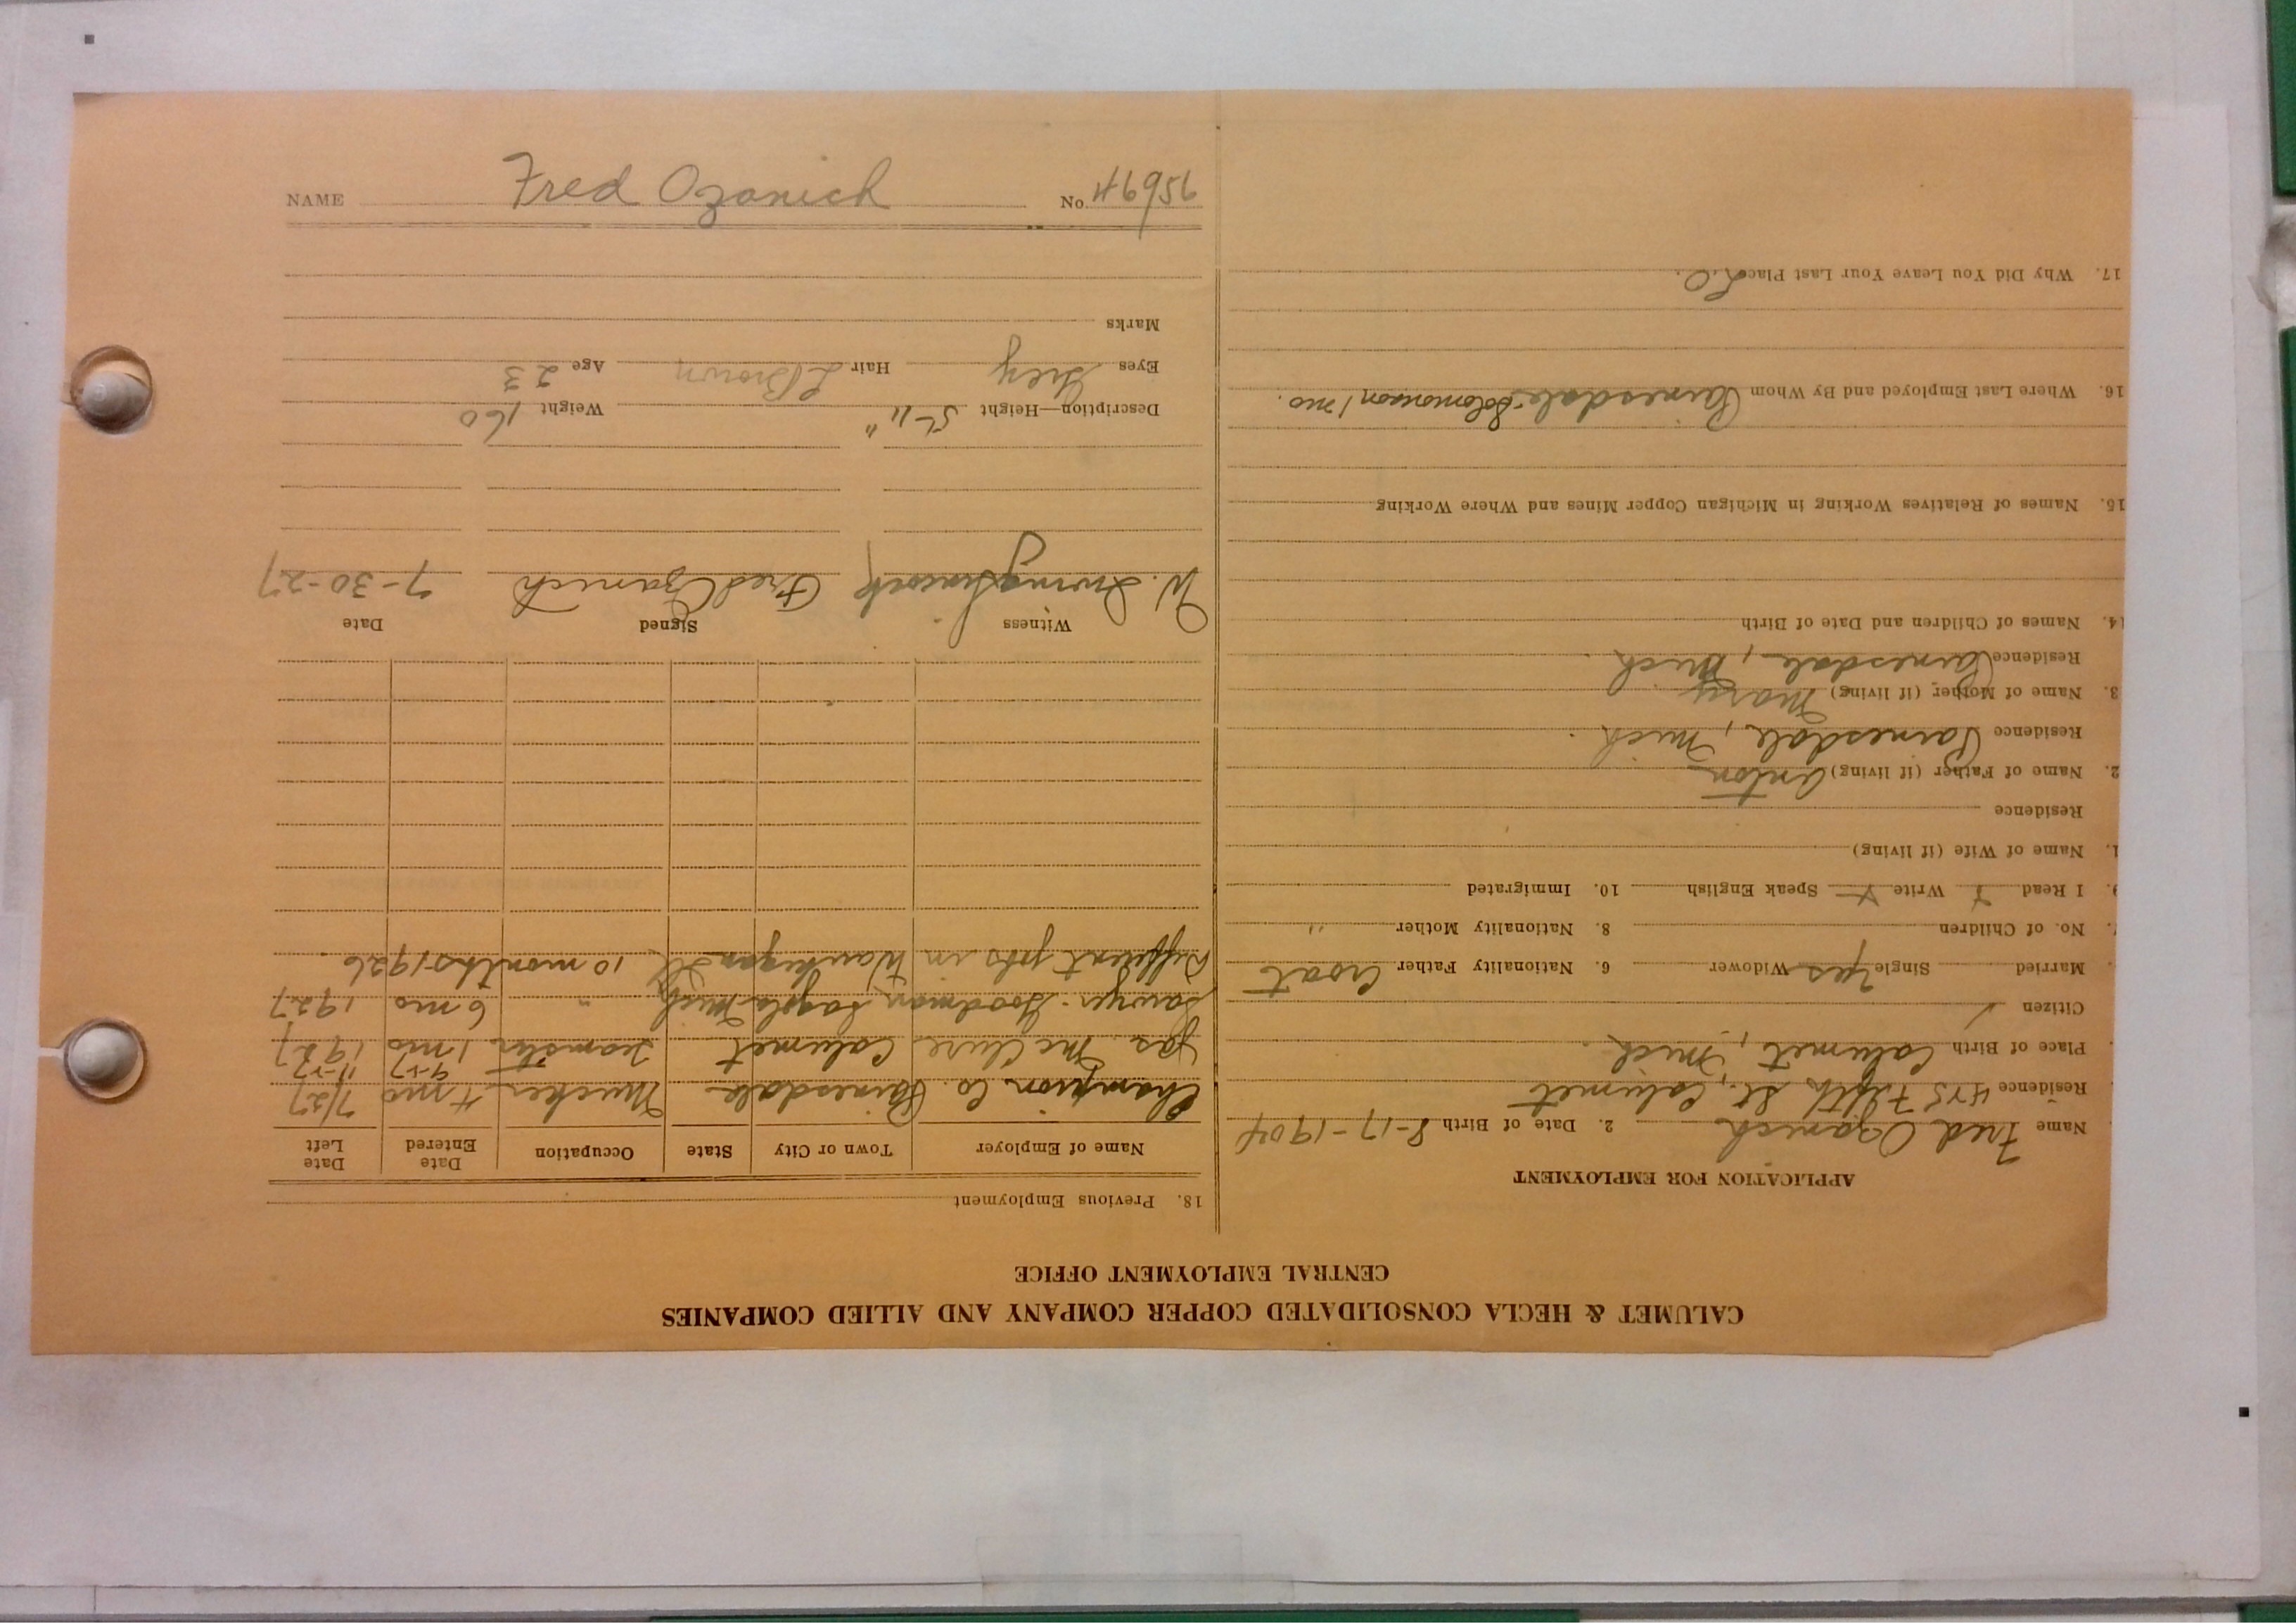 NAME Fred Ozanich No. 46956
CALUMET & HECLA CONSOLIDATED COPPER COMPANY AND ALLIED COMPANIES
CENTRAL EMPLOYMENT OFFICE
APPLICATION FOR EMPLOYMENT
Name Fred Ozanich 2. Date of Birth 8-17-1904
Residence 475 Fifth St., Calumet
Place of Birth Calumet, Mich.
Citizen ✓
Married Single Yes Widower 6. Nationality Father Croat
No. of Children 8. Nationality Mother "
9. I Read x Write x Speak English 10. Immigrated
1. Name of Wife (if living)
Residence
2. Name of Father (if living) Anton
Residence Painesdale, Mich.
3. Name of Mother (if living) Mary
Residence Painesdale, Mich.
14. Names of Children and Date of Birth
15. Names of Relatives Working in Michigan Copper Mines and Where Working
16. Where Last Employed and By Whom Painesdale - Solomonson 1 mo.
17. Why Did You Leave Your Last Place L.O.
18. Previous Employment
Name of Employer Town or City State Occupation Date Entered Date Left
Champion Co. Painesdale Mucker 4 mo 7/27
4-27 11-27
Jas. McClure Calumet Teamster 1 mo 1927
Sawyer-Goodman Sagola Mich " 6 mo 1927
Different jobs in Waukegan Ill 10 months 1926.
Witness Signed Date
W. Irving Fred Ozanich 7-30-27
Description—Height 5-11" Weight 160
Eyes Grey Hair L Brown Age 23
Marks